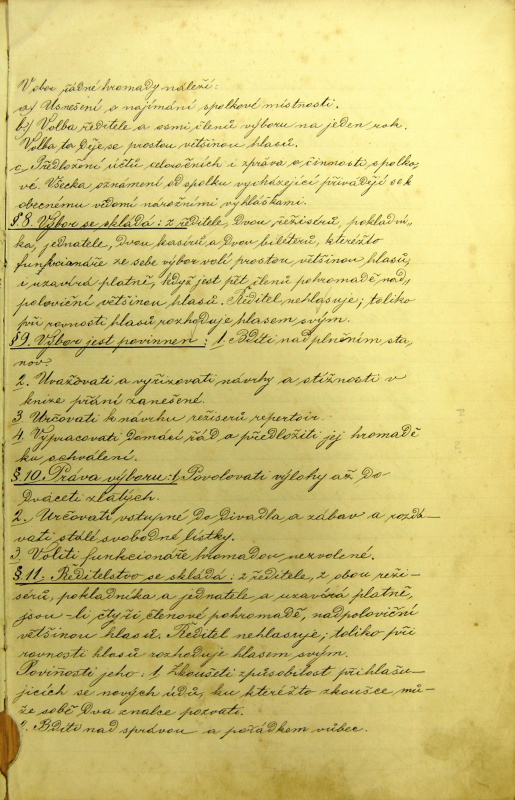 V obor řádné hromady náleží:
a) Usnešení o najímání spolkové místnosti.
b) Volba ředitele a osmi členů výboru na jeden rok.
Volba ta děje se prostou většinou hlasů.
c) Předložení účtů celoročních i zpráva o činnosti spolko-
vé. Všecka oznámení od spolku vycházející přivádějí se k
obecnému vědomí nárožními vyhláškami.
§ 8. Výbor se skládá: z ředitele, dvou režisérů, pokladní-
ka, jednatele, dvou kasírů a dvou biletérů, kteréžto
funkcionáře ze sebe výbor volí prostou většinou hlasů,
i uzavírá platně, když jest pět členů pohromadě nad
poloviční většinou hlasů. Ředitel nehlasuje; toliko
při rovnosti hlasů rozhoduje hlasem svým.
§ 9. Výbor jest povinnen: 1. Bdíti nad plněním sta-
nov.
2. Uvažovati a vyřizovati návrhy a stížnosti v
knize přání zanešené.
3. Určovati k návrhu režiserů repertoir.
4. Vypracovati domácí řád a předložiti jej hromadě
ku schválení.
§. 10. Práva výboru: 1. Povolovati výlohy až do
dvaceti zlatých.
2. Určovati vstupné do divadla a zábav a rozdá-
vati stálé svobodné lístky.
3. Voliti funkcionáře hromadou nezvolené.
§ 11. Ředitelstvo se skládá: z ředitele, z obou reži-
sérů, pokladníka a jednatele a uzavírá platně,
jsou-li čtyři členové pohromadě, nadpoloviční
většinou hlasů. Ředitel nehlasuje; toliko při
rovnosti hlasů rozhoduje hlasem svým.
Poviňosti jeho: 1. Zkoušeti způsobilost přihlašu-
jících se nových údů, ku kteréžto zkoušce mů-
že sobě dva znalce pozvati.
2. Bdíti nad správou a pořádkem vůbec.